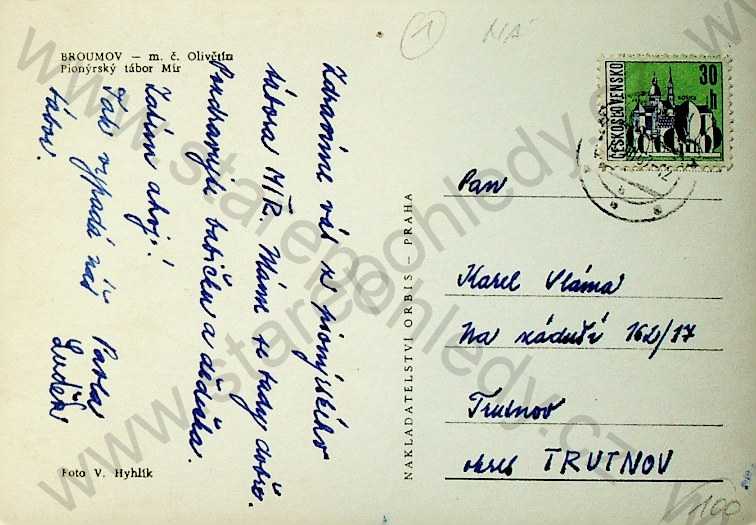 BROUMOV — m. č. Olivětín
Pionýrský tábor Mír
Zdravíme vás z pionýrského
tábora MÍR. Máme se tady dobře.
Pozdravujte babičku a dědečka.
Zatím ahoj!
Tak vypadá náš
tábor.
Pavla
Luděk
Foto V. Hyhlík
NAKLADATELSTVÍ ORBIS — PRAHA
1
ČESKOSLOVENSKO
30
h
Pan
Karel Vláma
Na zádušé 162/17
Trutnov
okres TRUTNOV
100
www.starepohledy.cz
www.starepohledy.cz